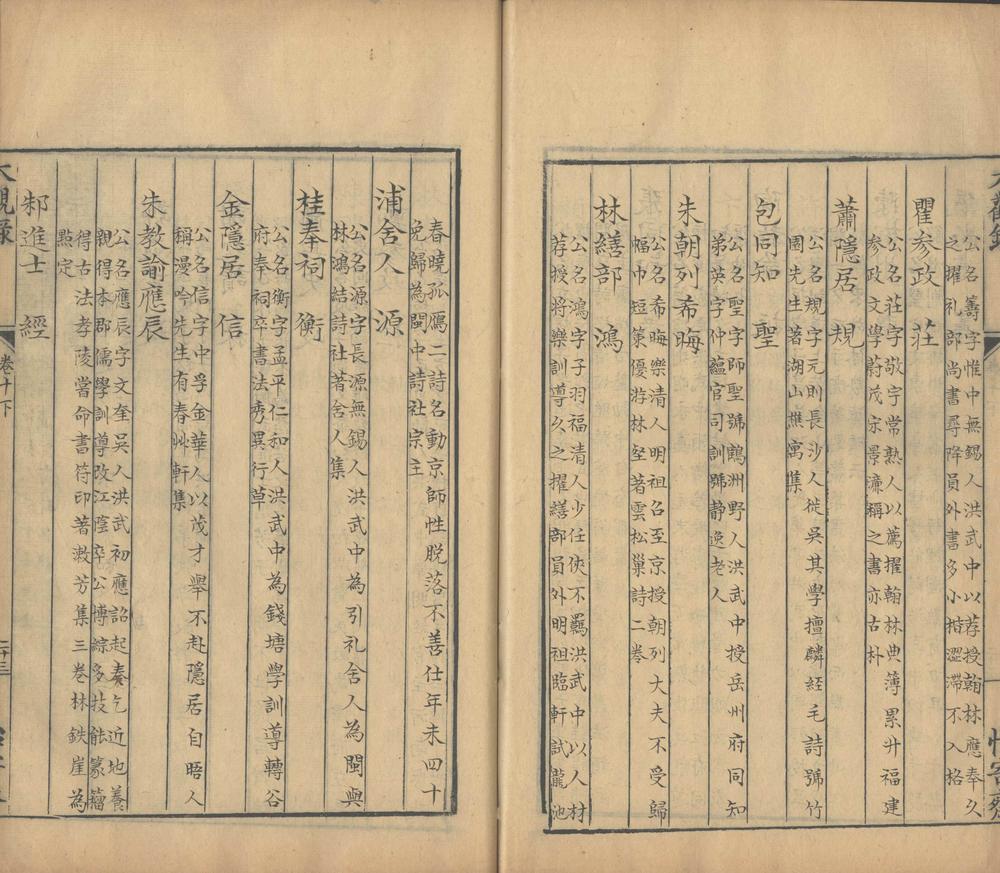 大觀錄
怡寄齋
公名籌字惟中無錫人洪武中以荐授翰林應奉久
之擢礼部尚書尋降員外書多小楷澀滯不入格
瞿參政 莊
公名莊字敬字常熟人以薦擢翰林典簿累升福建
參政文學蔚茂宋景濂稱之書亦古朴
蕭隱居 規
公名規字元則長沙人徙吳其學擅麟經毛詩號竹
園先生著湖山樵寓集
包同知 聖
公名聖字師聖號鶴洲野人洪武中授岳州府同知
弟英字仲蘊官司訓號静逸老人
朱朝列希晦
公名希晦樂清人明祖召至京授朝列大夫不受歸
幅巾短策優游林壑著雲松巢詩二卷
林繕部 鴻
公名鴻字子羽福清人少任俠不羈洪武中以人材
荐授將樂訓導久之擢繕部員外明祖臨軒試龍池
春曉孤鴈二詩名動京師性脫落不善仕年未四十
免歸為閩中詩社宗主
浦舍人 源
公名源字長源無錫人洪武中為引礼舍人為閩與
林鴻結詩社著舍人集
桂奉祠 衡
公名衡字孟平仁和人洪武中為錢塘學訓導轉谷
府奉祠卒書法秀異行草
金隱居 信
公名信字中孚金華人以茂才舉不赴隱居自晤人
稱漫吟先生有春艸軒集
朱教諭應辰
公名應辰字文奎吳人洪武初應詔起奏乞近地養
親得本郡儒學訓導改江蔭卒公博綜多技能篆籀
得古法孝陵嘗命書符印著漱芳集三卷林鉄崖為
點定
邾進士 經
大觀錄
卷十下
二十三